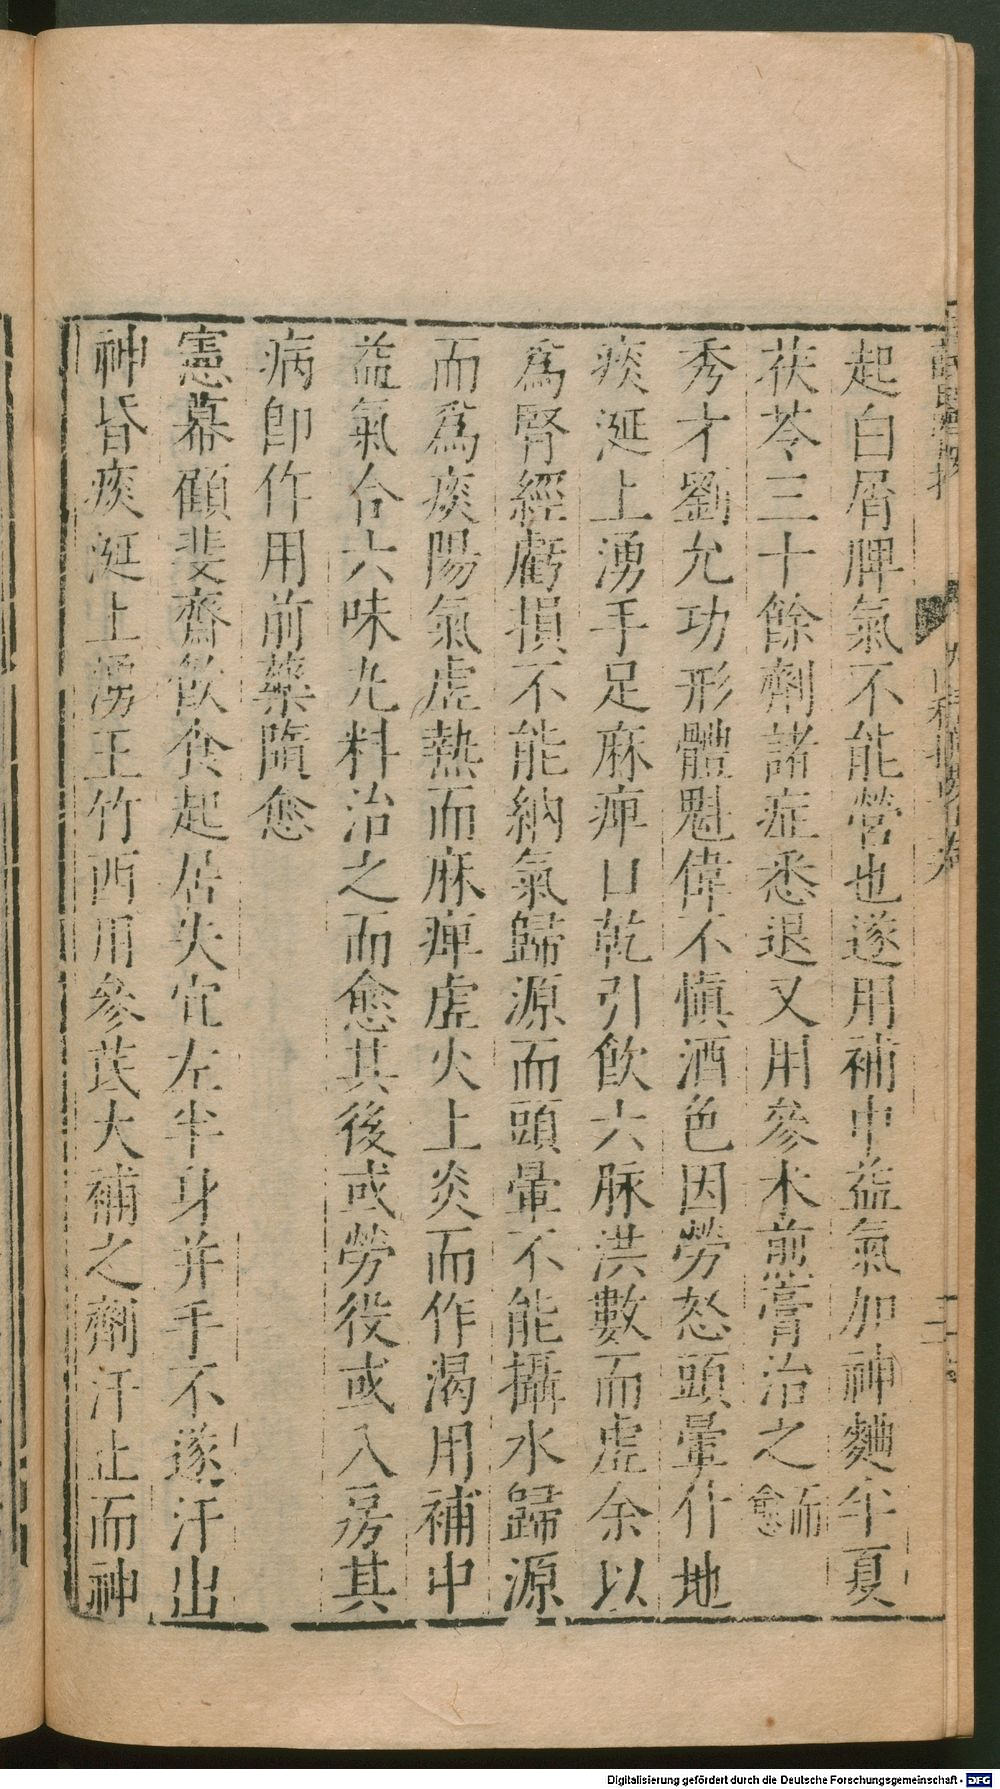 起白屑脾氣不能營也遂用補中益氣加神麯半夏
茯苓三十餘劑諸症悉退又用參术煎膏治之而愈
秀才劉允功形體魁偉不慎酒色因勞怒頭暈仆地
痰涎上湧手足麻痺口乾引飲六脉洪數而虛余以
爲腎經虧損不能納氣歸源而頭暈不能攝水歸源
而爲痰陽氣虛熱而麻痺虛火上炎而作渴用補中
益氣合六味丸料治之而愈其後或勞役或入房其
病卽作用前藥隨愈
憲幕顧斐齋飲食起居失宜左半身并手不遂汗出
神昏痰涎上湧王竹西用參芪大補之劑汗止而神
Digitalisierung gefördert durch die Deutsche Forschungsgemeinschaft - DFG